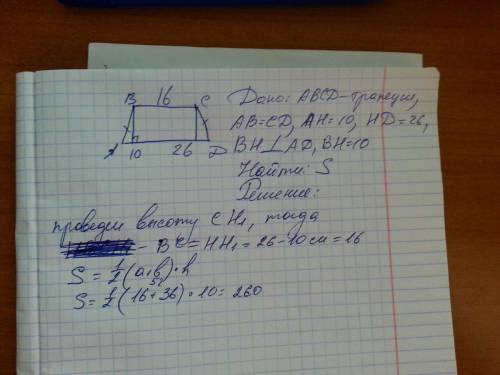 B 16 C
A 10 26 D
Дано: ABCD-трапеция,
AB=CD, AH=10, HD=26,
BH⊥AD, BH=10
Найти: S
Решение:
проведем высоту CH₁, тогда
- BC=HH₁=26-10см=16
S=½(a+b)·h
52
S=½(16+36)·10=260